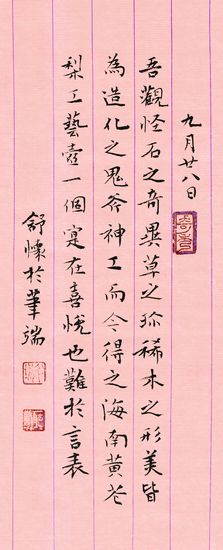 九月廿八日
吾觀怪石之奇異草之珍稀木之形美皆
為造化之鬼斧神工而今得之海南黃花
梨工藝壺一個寔在喜悅也難於言表
舒懷於筆端